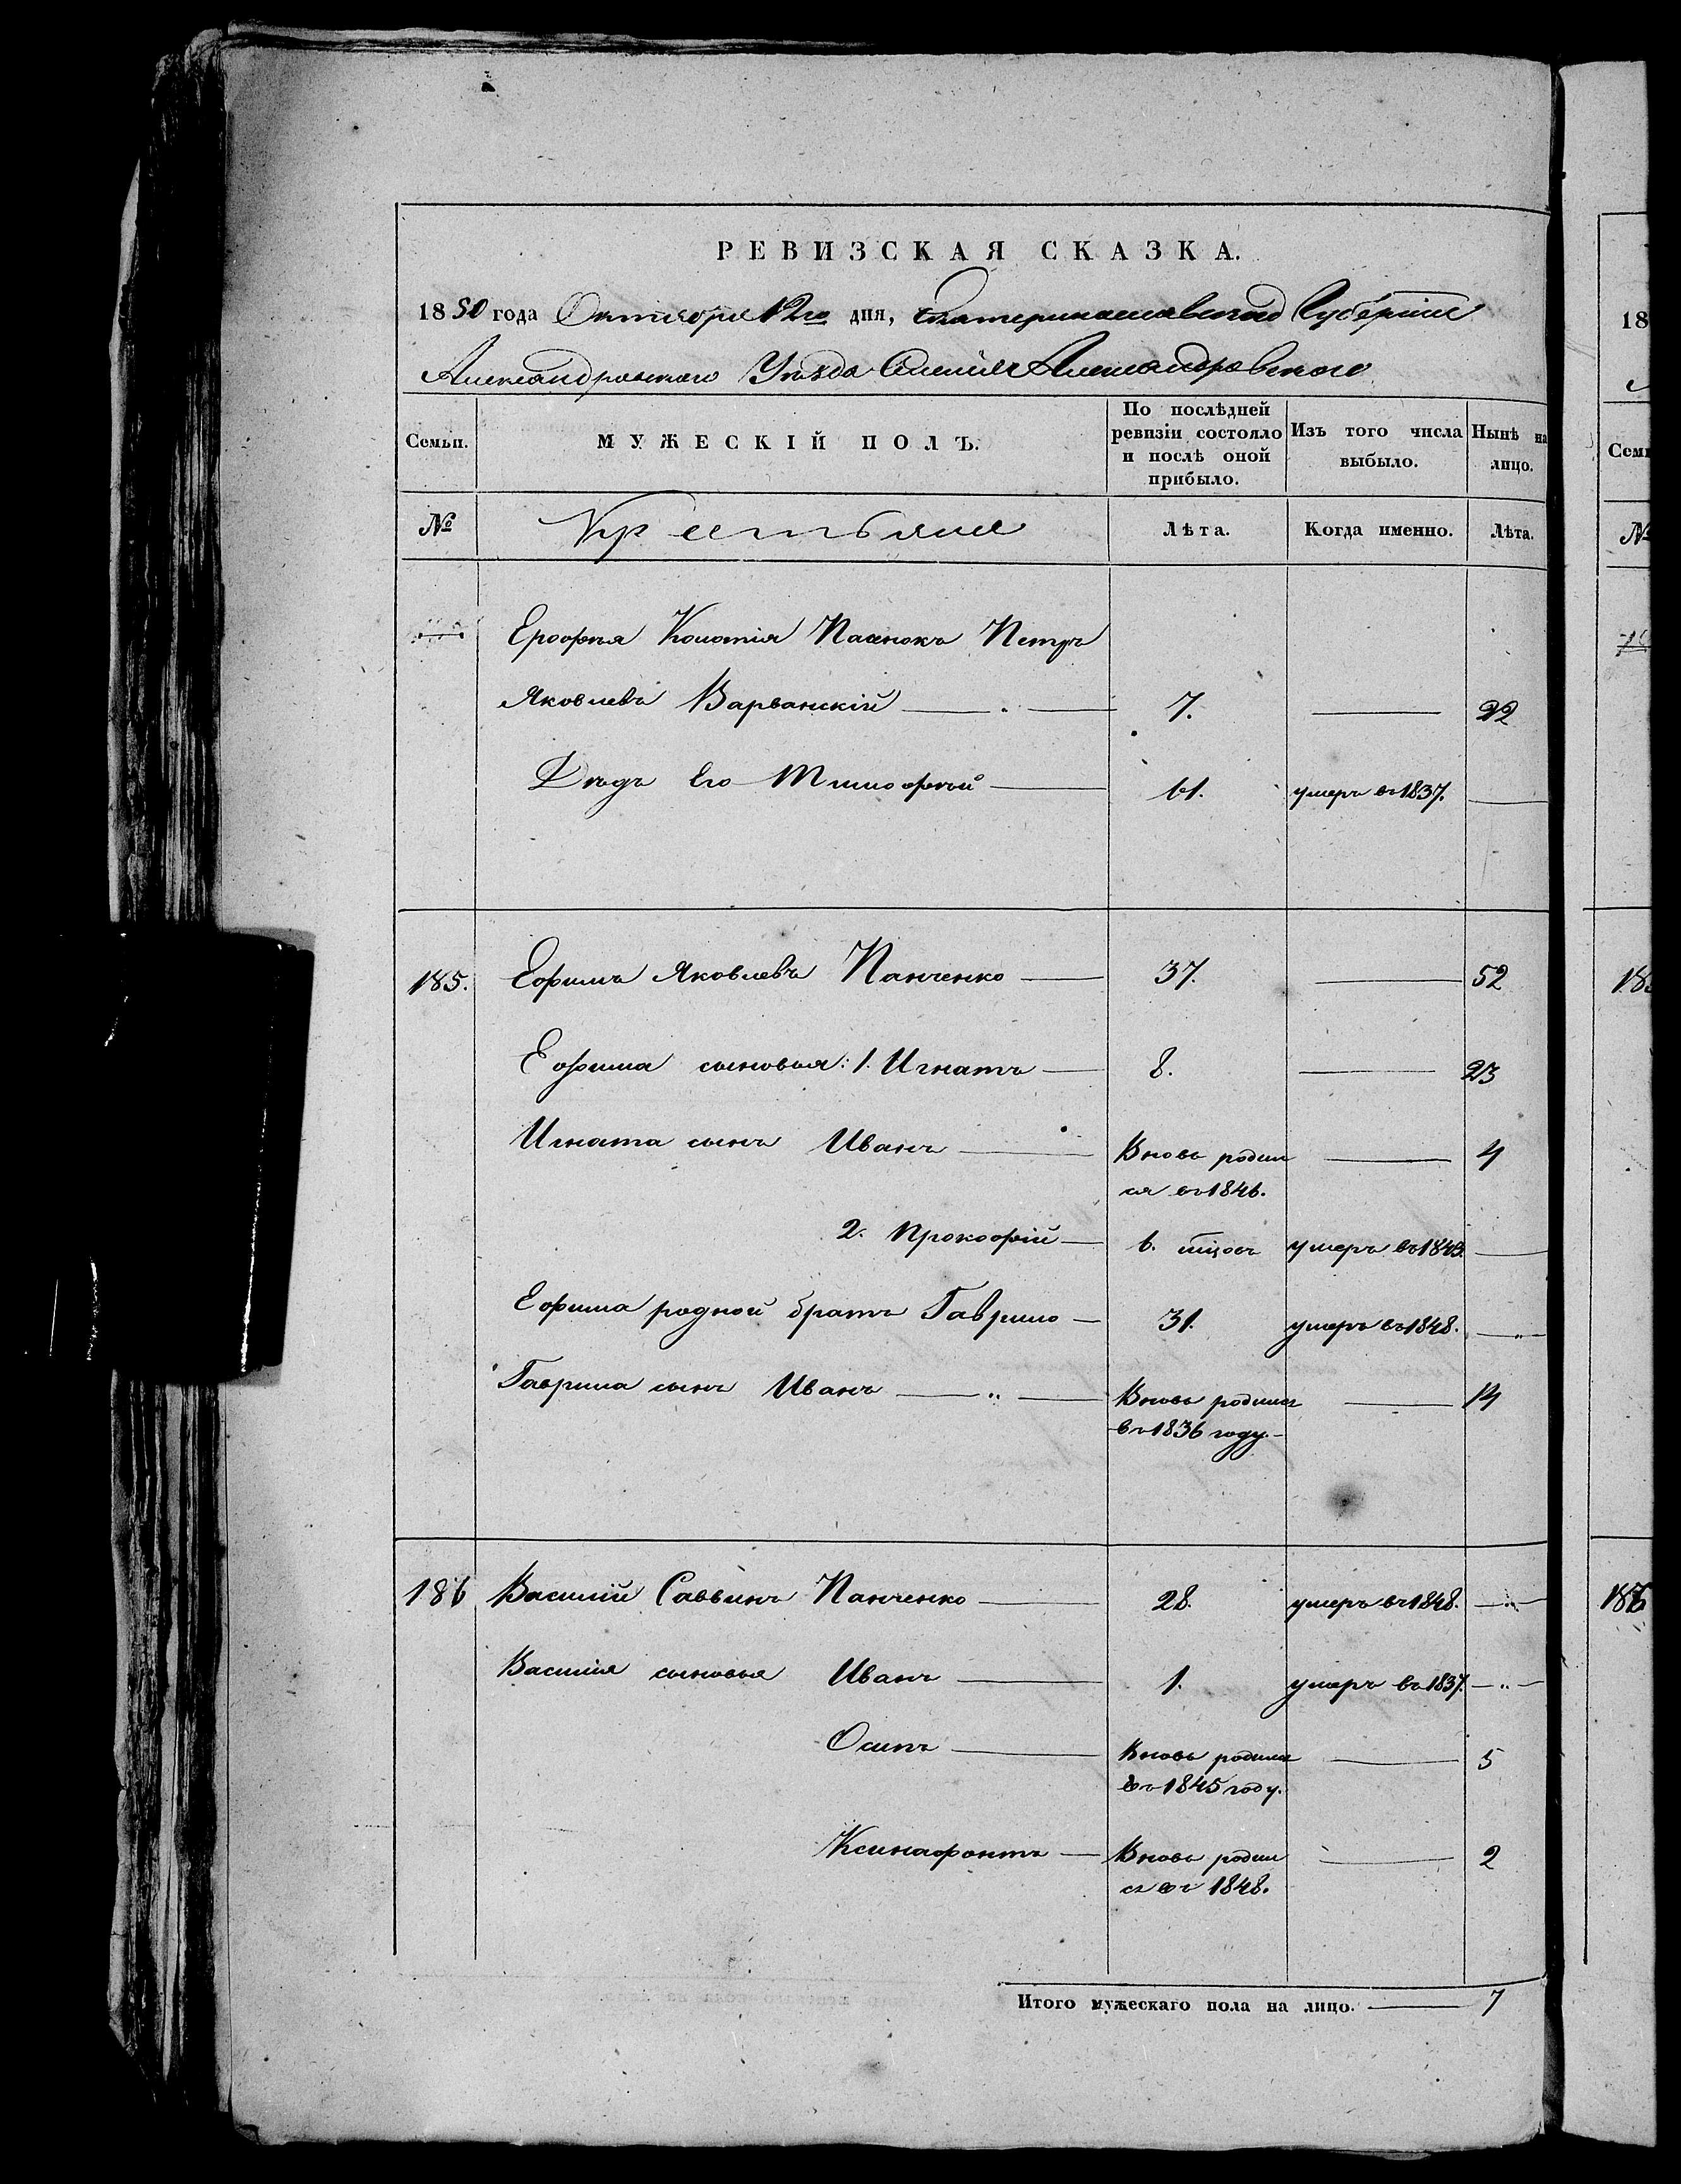 РЕВИЗСКАЯ СКАЗКА.
1850 года Октября 12го дня, Екатеринославской Губерніи
Александровскаго Уѣзда Селенія Александровскаго
Семьи.
МУЖЕСКІЙ ПОЛЪ.
По послѣдней ревизіи состояло и послѣ оной прибыло.
Изъ того числа выбыло.
Нынѣ на лицо.
№ Крестьяне Лѣта. Когда именно. Лѣта.
Ерофѣя Пасенокъ Петръ
Яковлевъ Варванскій 7. 22
Дѣдъ его Тимофѣй 61. умеръ въ 1837.
185. Ефимъ Яковлевъ Панченко 37. 52
Ефима сыновья: 1. Игнатъ 8. 23
Игната сынъ Иванъ Вновь родил 4
ся въ 1846.
2. Прокофій 6. мцовъ умеръ въ 1843.
Ефима родной братъ Гаврило 31. умеръ въ 1848.
Гаврила сынъ Иванъ Вновь родился 14
въ 1836 году.
186 Василій Саввинъ Панченко 28. умеръ въ 1848.
Василія сыновья Иванъ 1. умеръ въ 1837.
Осипъ Вновь родился 5
въ 1845 году.
Ксинафонтъ Вновь родил 2
ся въ 1848.
Итого мужескаго пола на лицо. 7
18
Семь
№
186